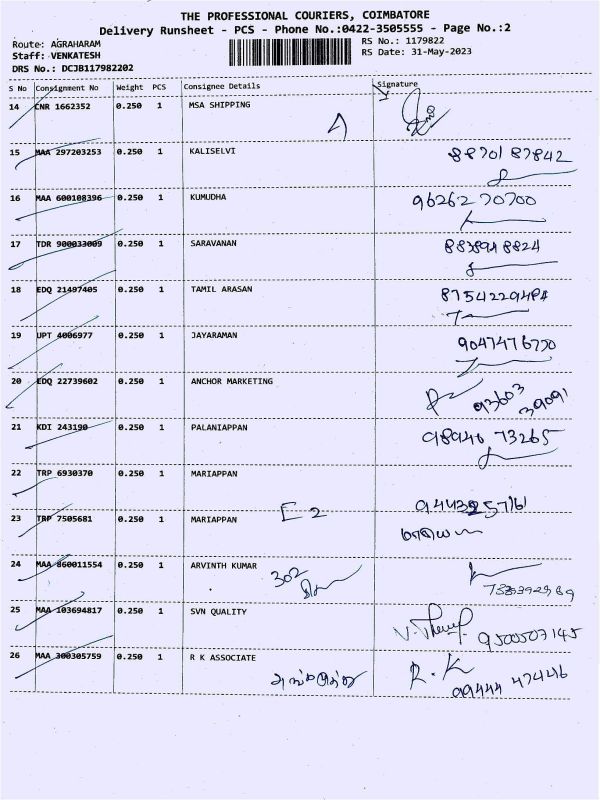 THE PROFESSIONAL COURIERS, COIMBATORE
Delivery Runsheet - PCS - Phone No.:0422-3505555 - Page No.:2
Route: AGRAHARAM RS No.: 1179822
Staff: VENKATESH RS Date: 31-May-2023
DRS No.: DCJB117982202
S No Consignment No Weight PCS Consignee Details Signature
14 CNR 1662352 0.250 1 MSA SHIPPING
15 MAA 297203253 0.250 1 KALISELVI 88701 87842
16 MAA 600108396 0.250 1 KUMUDHA 96262 70700
17 TDR 900033009 0.250 1 SARAVANAN
18 EDQ 21497405 0.250 1 TAMIL ARASAN 8754229484
19 UPT 4006977 0.250 1 JAYARAMAN
20 EDQ 22739602 0.250 1 ANCHOR MARKETING 93603
39091
21 KDI 243190 0.250 1 PALANIAPPAN 98946 73265
22 TRP 6930370 0.250 1 MARIAPPAN
23 TRP 7505681 0.250 1 MARIAPPAN E 2 9443257161
24 MAA 860011554 0.250 1 ARVINTH KUMAR 302
25 MAA 103694817 0.250 1 SVN QUALITY 9500507145
26 MAA 300305759 0.250 1 R K ASSOCIATE R. K
99444 47446